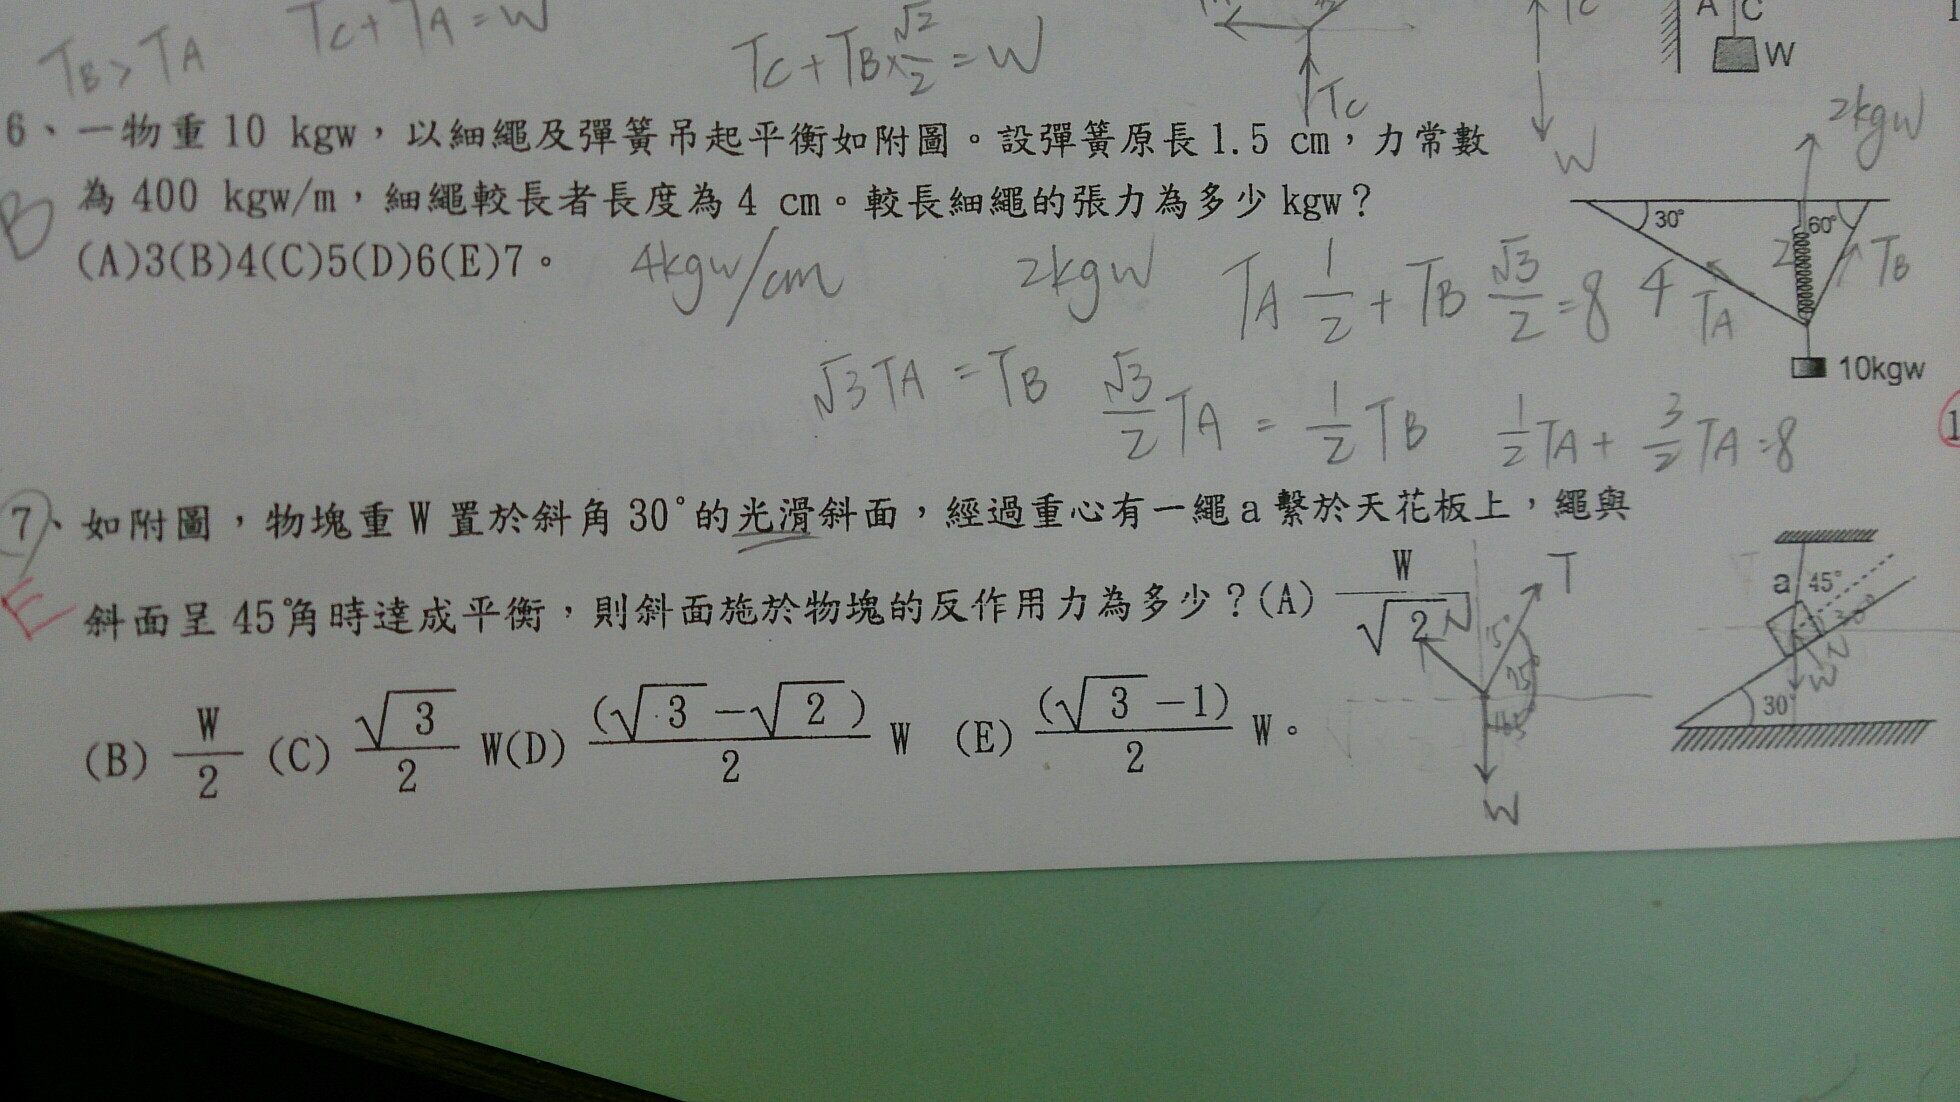 TB > TA
TC + TA = W
TC + TB × √2/2 = W
TC
TC
W
A C
W
6、一物重10 kgw，以細繩及彈簧吊起平衡如附圖。設彈簧原長1.5 cm，力常數
為400 kgw/m，細繩較長者長度為4 cm。較長細繩的張力為多少kgw？
(A)3(B)4(C)5(D)6(E)7。
B
4kgw/cm
2kgw
TA 1/2 + TB √3/2 = 8
√3 TA = TB
√3/2 TA = 1/2 TB
1/2 TA + 3/2 TA = 8
2kgw
30°
60°
2
4
TA
TB
10kgw
1
7、如附圖，物塊重W置於斜角30°的光滑斜面，經過重心有一繩a繫於天花板上，繩與
斜面呈45°角時達成平衡，則斜面施於物塊的反作用力為多少？(A) W/√2
(B) W/2 (C) √3/2 W(D) (√3-√2)/2 W (E) (√3-1)/2 W。
E
N
T
15°
75°
W
a
45°
30°
N
W
30°